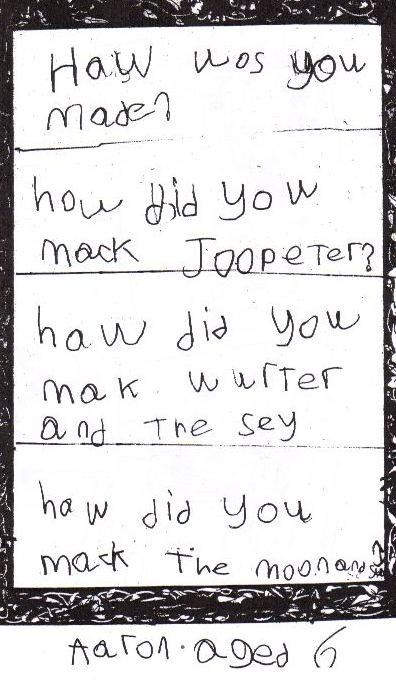 Haw wos you
made?
how did you
mack Joopeter?
haw did you
mak wurter
and the sey
haw did you
mack the moon and
Aaron. aged 6